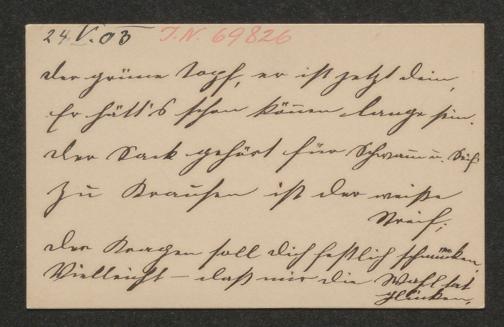 24 V. 03 I.N. 69826
Der grüne Topf, er ist jetzt dein,
Er hätt's schon können lange sein.
Der Sack gehört für Schwamm u. Seif
Zu Krausen ist der weiße
Streif;
Der Kragen soll dich festlich schmücken,
Vielleicht – daß mir die Wahl tat
glücken.